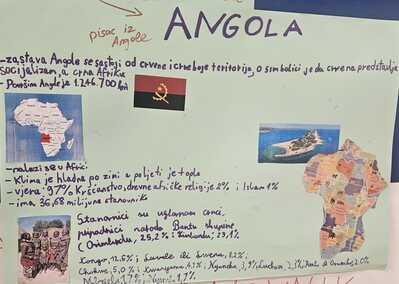 ANGOLA
pisac iz
Angole
-zastava Angole se sastoji od crvene i crne boje teritorija, o simbolici je da crvena predstavlja
socijalizam, a crna Afriku
- Površina Angole je 1.246.700 km
- nalazi se u Africi
- Klima je hladna po zimi u ljeti je topla
- vjera: 97% Kršćanstvo, drevne afričke religije 2% i Islam 1%
- ima 36,68 milijuna stanovnika
Stanovnici su uglavnom crnci,
pripadnici naroda Bantu skupine
(Ovimbundu, 25,2% Kimbundu; 23,1%
Kongo, 12,6%
5,0% Kwanyama, 4,1% Nganchela
1,7%